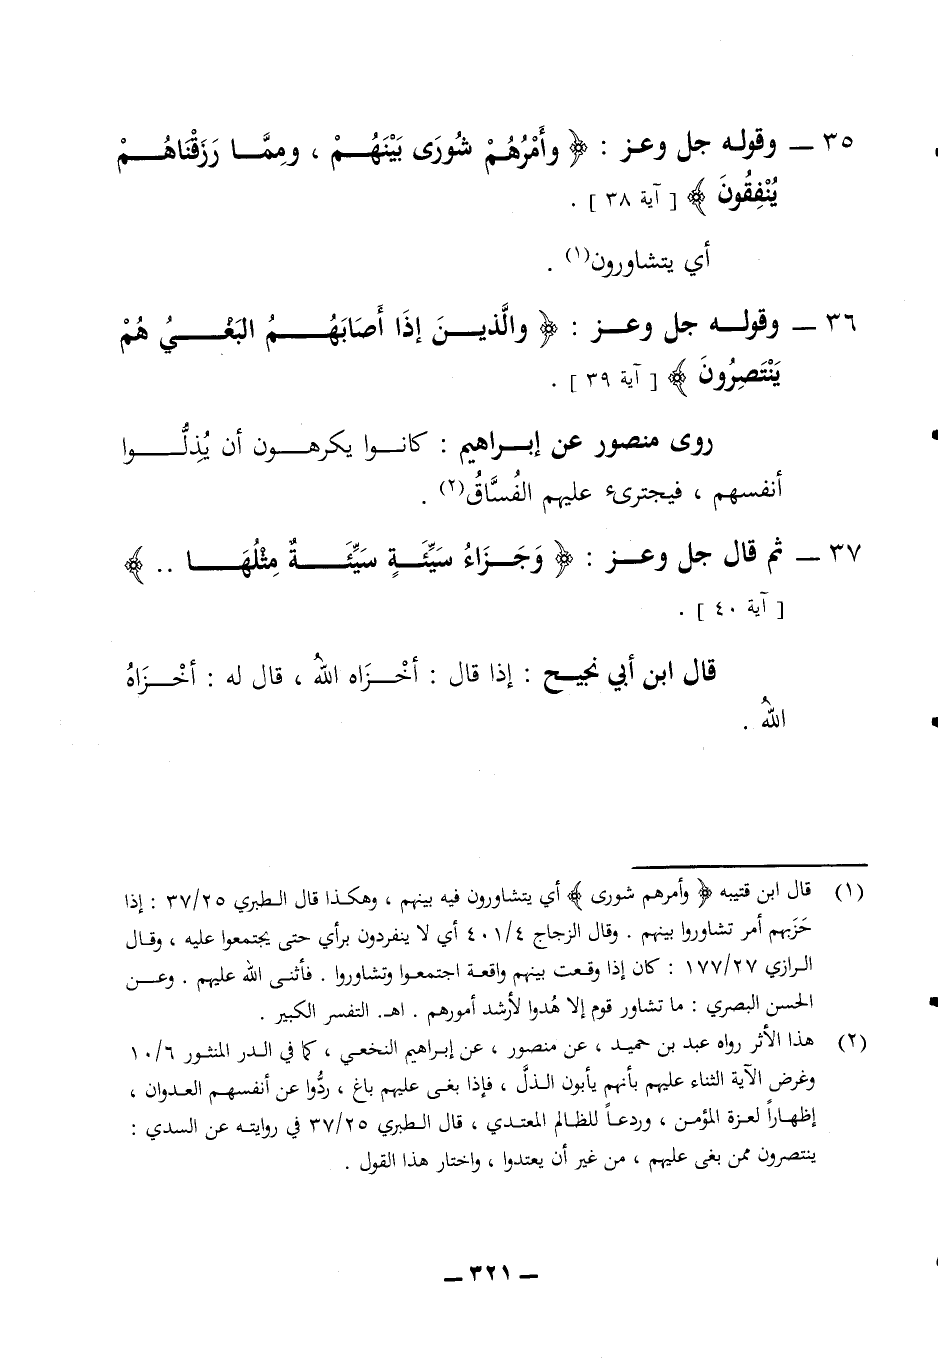 ٣٥ ــ وقولـه جل وعـز : ﴿ وأَمْرُهُمْ شُورَى بَيْنَهُـمْ ، ومِمَّـا رَزَقْنَاهُـمْ
يُنْفِقُونَ ﴾ [ آية ٣٨ ] .
أي يتشاورون(١) .
٣٦ ــ وقولـه جل وعـز : ﴿ والَّذيـنَ إذَا أَصَابَهُـمُ البَغْـيُ هُمْ
يَنْتَصِرُونَ ﴾ [ آية ٣٩ ] .
روى منصور عن إبـراهيم : كانـوا يكرهـون أن يُذِلُّـوا
أنفسهم ، فيجترىء عليهم الفُسَّاقُ(٢) .
٣٧ ــ ثم قال جل وعـز : ﴿ وَجَـزَاءُ سَيِّئَـةٍ سَيِّئَـةٌ مِثْلُهَـا .. ﴾
[ آية ٤٠ ] .
قال ابن أبي نجيح : إذا قال : أخْـزَاه اللهُ ، قال له : أخْـزَاهُ
اللهُ .
(١) قال ابن قتيبه ﴿ وأمرهم شورى ﴾ أي يتشاورون فيه بينهم ، وهكـذا قال الـطبري ٣٧/٢٥ : إذا
حَزَبهم أمر تشاوروا بينهم . وقال الزجاج ٤٠١/٤ أي لا ينفردون برأي حتى يجتمعوا عليه ، وقـال
الـرازي ١٧٧/٢٧ : كان إذا وقـعت بينهم واقعـة اجتمعـوا وتشاوروا . فأثنـى الله عليهم . وعـن
الحسن البصري : ما تشاور قوم إلا هُدوا لأرشد أمورهم . اهـ. التفسر الكبير .
(٢) هذا الأثر رواه عبد بن حميـد ، عن منصور ، عن إبـراهيم النخعـي ، كما في الـدر المنثـور ١٠/٦
وغرض الآية الثناء عليهم بأنهم يأبون الـذلَّ ، فإذا بغـى عليهم باغ ، ردُّوا عن أنفسهـم العـدوان ،
إظهـاراً لعـزة المؤمـن ، وردعـاً للظالم المعتـدي ، قال الـطبري ٣٧/٢٥ في روايتـه عن السدي :
ينتصرون ممن بغى عليهم ، من غير أن يعتدوا ، واختار هذا القول .
ــ ٣٢١ ــ